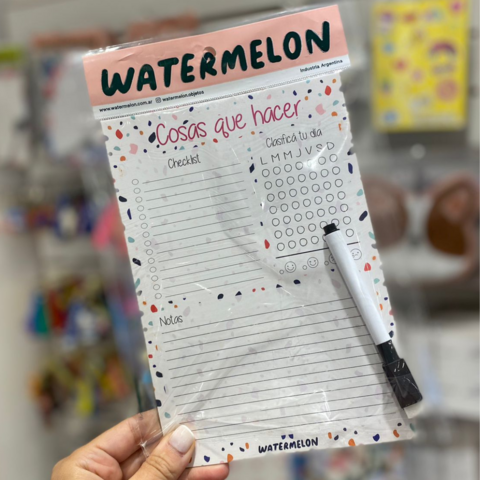 WATERMELON
www.watermelon.com.ar watermelon.objetos Industria Argentina
Cosas que hacer
Checklist
Clasificá tu día
L M M J V S D
Notas
WATERMELON